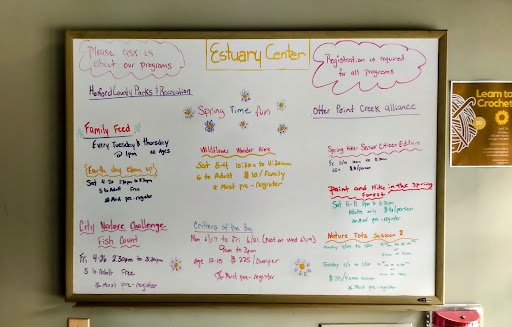 Please ask us
about our programs
Estuary Center
Registration is required
for all programs
Harford County Parks & Recreation
Spring Time fun
Otter Point Creek alliance
Family Feed
Every Tuesday & Thursday
@ 1pm All Ages
Earth day clean up
Sat 4-20
5 to Adult Free
* Must pre-register
City Nature Challenge
Fish Count
Fri. 4-26 2:30pm to 3:30pm
5 to Adult Free
* Must pre-register
Wildflower Wonder Hike
Sat 5-4 10:30a to 11:30am
6 to Adult $10/Family
* Must pre-register
Critters of the bay
Mon 6/17 to Fri 6/21 (not on wed 6/19)
9am to 3pm
Age 12-15 $225/camper
* Must pre-register
Spring Fever Senior Citizen Edition
Paint and Hike in the Spring
Forest
Sat 5-11
Adults only /person
* Must pre-register
Nature Tots Session 2
* Must pre-register
Learn to
Crochet